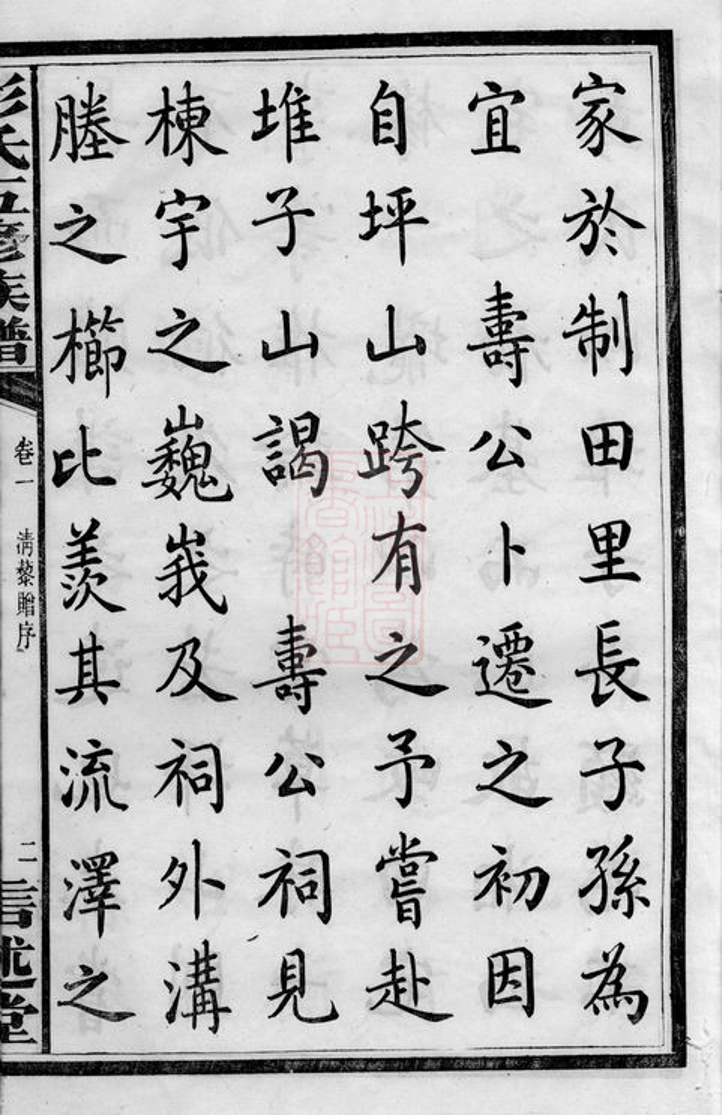 家於制田里長子孫為
宜　壽公卜遷之初因
自坪山跨有之予嘗赴
堆子山謁　壽公祠見
棟宇之巍峩及祠外溝
塍之櫛比羨其流澤之
彭氏五修族譜
卷一　清藜贈序
二
言述堂